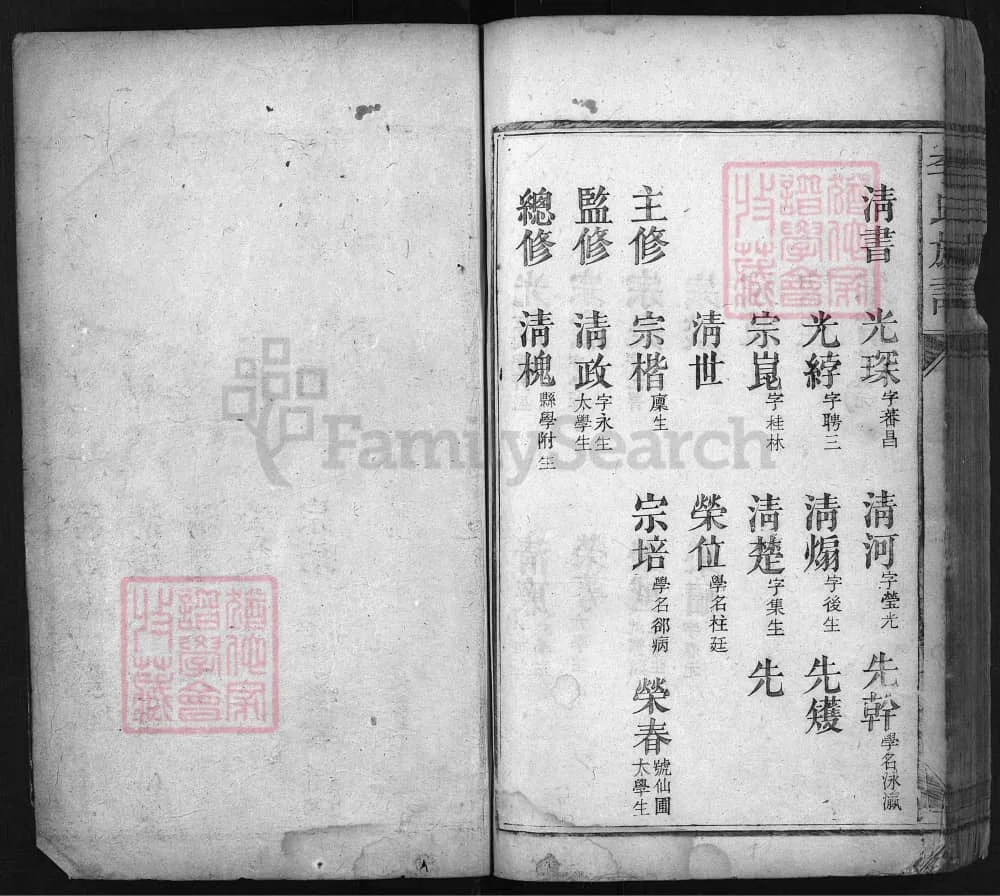 李氏族譜
清書 光琛字蕃昌 清河字瑩光 先幹學名泳瀛
光綍字聘三 清煽字後生 先矱
宗崑字桂林 清楚字集生 先
清世 榮位學名柱廷
主修 宗楷廩生 宗培學名郤病 榮春號仙圃太學生
監修 清政字永生太學生
總修 清槐縣學附生
FamilySearch